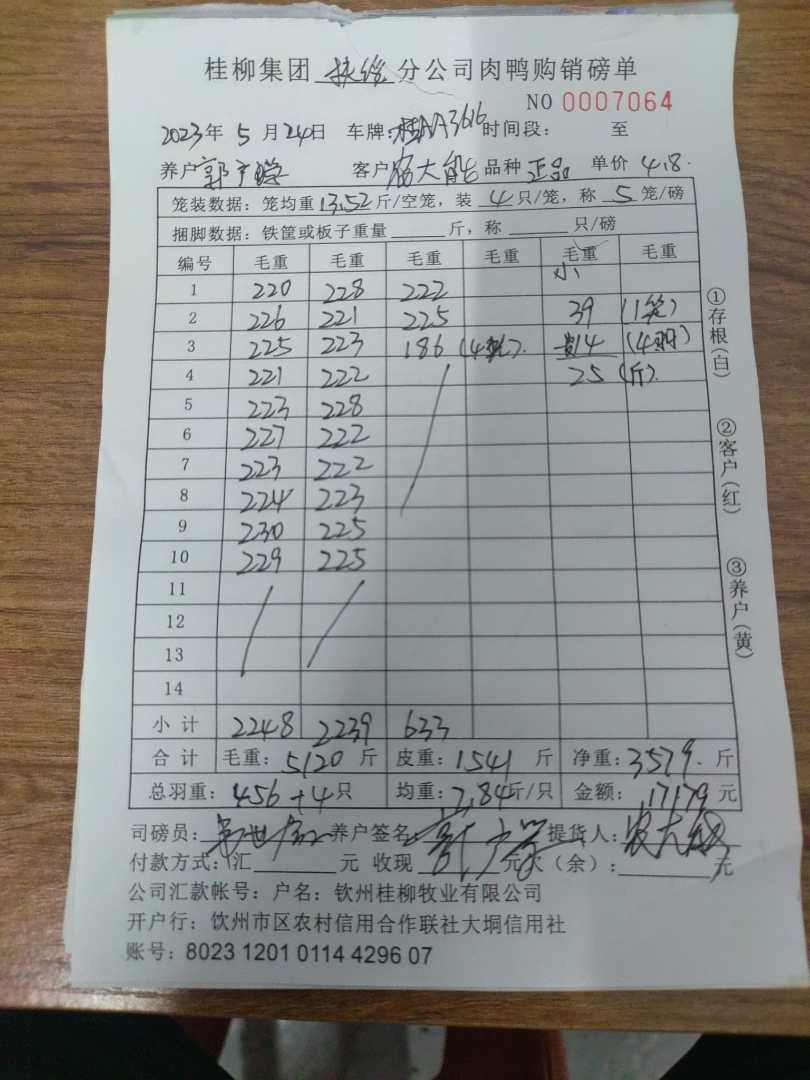 桂柳集团 扶绥 分公司肉鸭购销磅单
NO 0007064
2023年 5 月 24日 车牌:桂AA3616 时间段： 至
养户 郭 客户 农大能 品种 正品 单价 4.8
笼装数据：笼均重 13.52 斤/空笼，装 4 只/笼，称 5 笼/磅
捆脚数据：铁筐或板子重量______斤，称______只/磅
编号 毛重 毛重 毛重 毛重 毛重 毛重
小
1 220 228 222
2 226 221 225 39 (1笼)
3 225 223 186 (4笼). 14 (4)
4 221 222 25 (斤).
5 223 228
6 227 222
7 223 222
8 224 223
9 230 225
10 229 225
11
12
13
14
小 计 2248 2239 633
合 计 毛重：5120 斤 皮重：1541 斤 净重：3579. 斤
总羽重：456+4只 均重：7.84斤/只 金额：17179 元
司磅员： 养户签名 提货人：农大能
付款方式：汇______元 收现______元欠（余）：______元
公司汇款帐号：户名：钦州桂柳牧业有限公司
开户行：钦州市区农村信用合作联社大垌信用社
账号：8023 1201 0114 4296 07
①存根（白）
②客户（红）
③养户（黄）